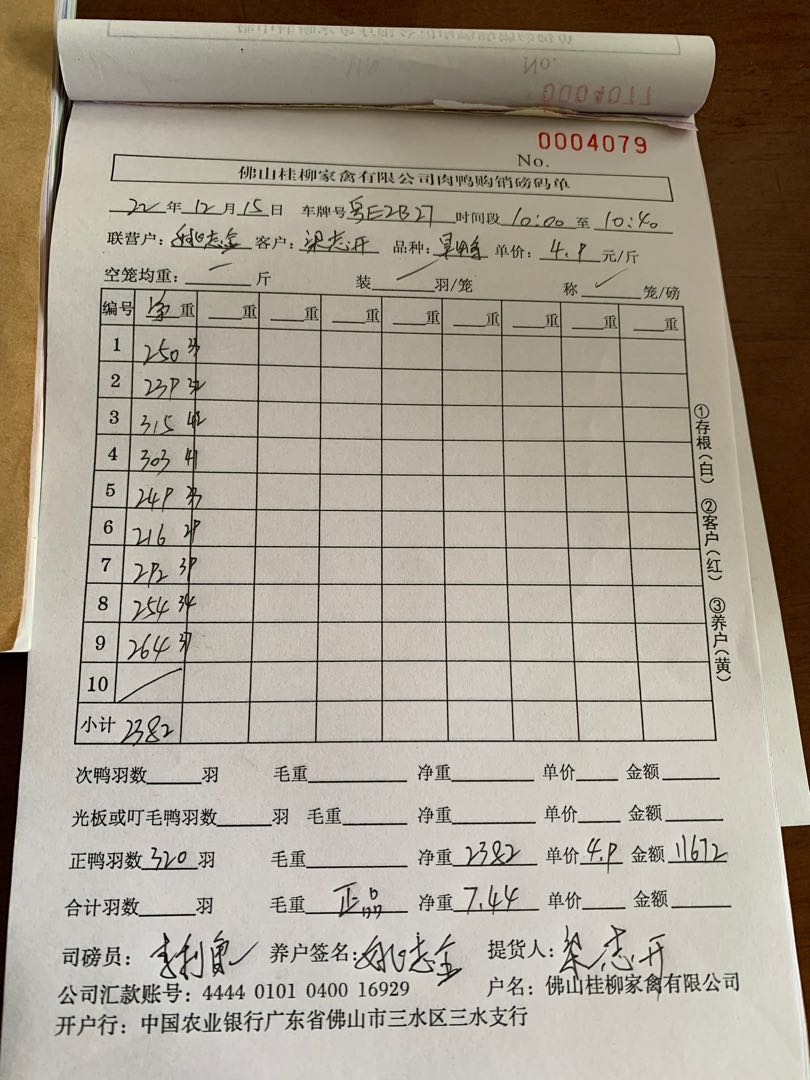 No. 0004077
No. 0004079
佛山桂柳家禽有限公司肉鸭购销磅码单
22年12月15日 车牌号粤E2B27 时间段10:00至10:40
联营户:姚志金 客户:梁志开 品种: 单价:4.9元/斤
空笼均重:一斤 装/羽/笼 称✓笼/磅
编号 重 重 重 重 重 重 重 重 重
1 250 33
2 239 32
3 315 42
4 303 41
5 249 33
6 216 29
7 292 39
8 254 34
9 264 37
10 /
小计 2382
①存根(白) ②客户(红) ③养户(黄)
次鸭羽数 羽 毛重 净重 单价 金额
光板或叮毛鸭羽数 羽 毛重 净重 单价 金额
正鸭羽数320羽 毛重 净重2382 单价4.9 金额11672
合计羽数 羽 毛重正品 净重7.44 单价 金额
司磅员: 养户签名:姚志金 提货人:梁志开
公司汇款账号:4444 0101 0400 16929 户名:佛山桂柳家禽有限公司
开户行:中国农业银行广东省佛山市三水区三水支行